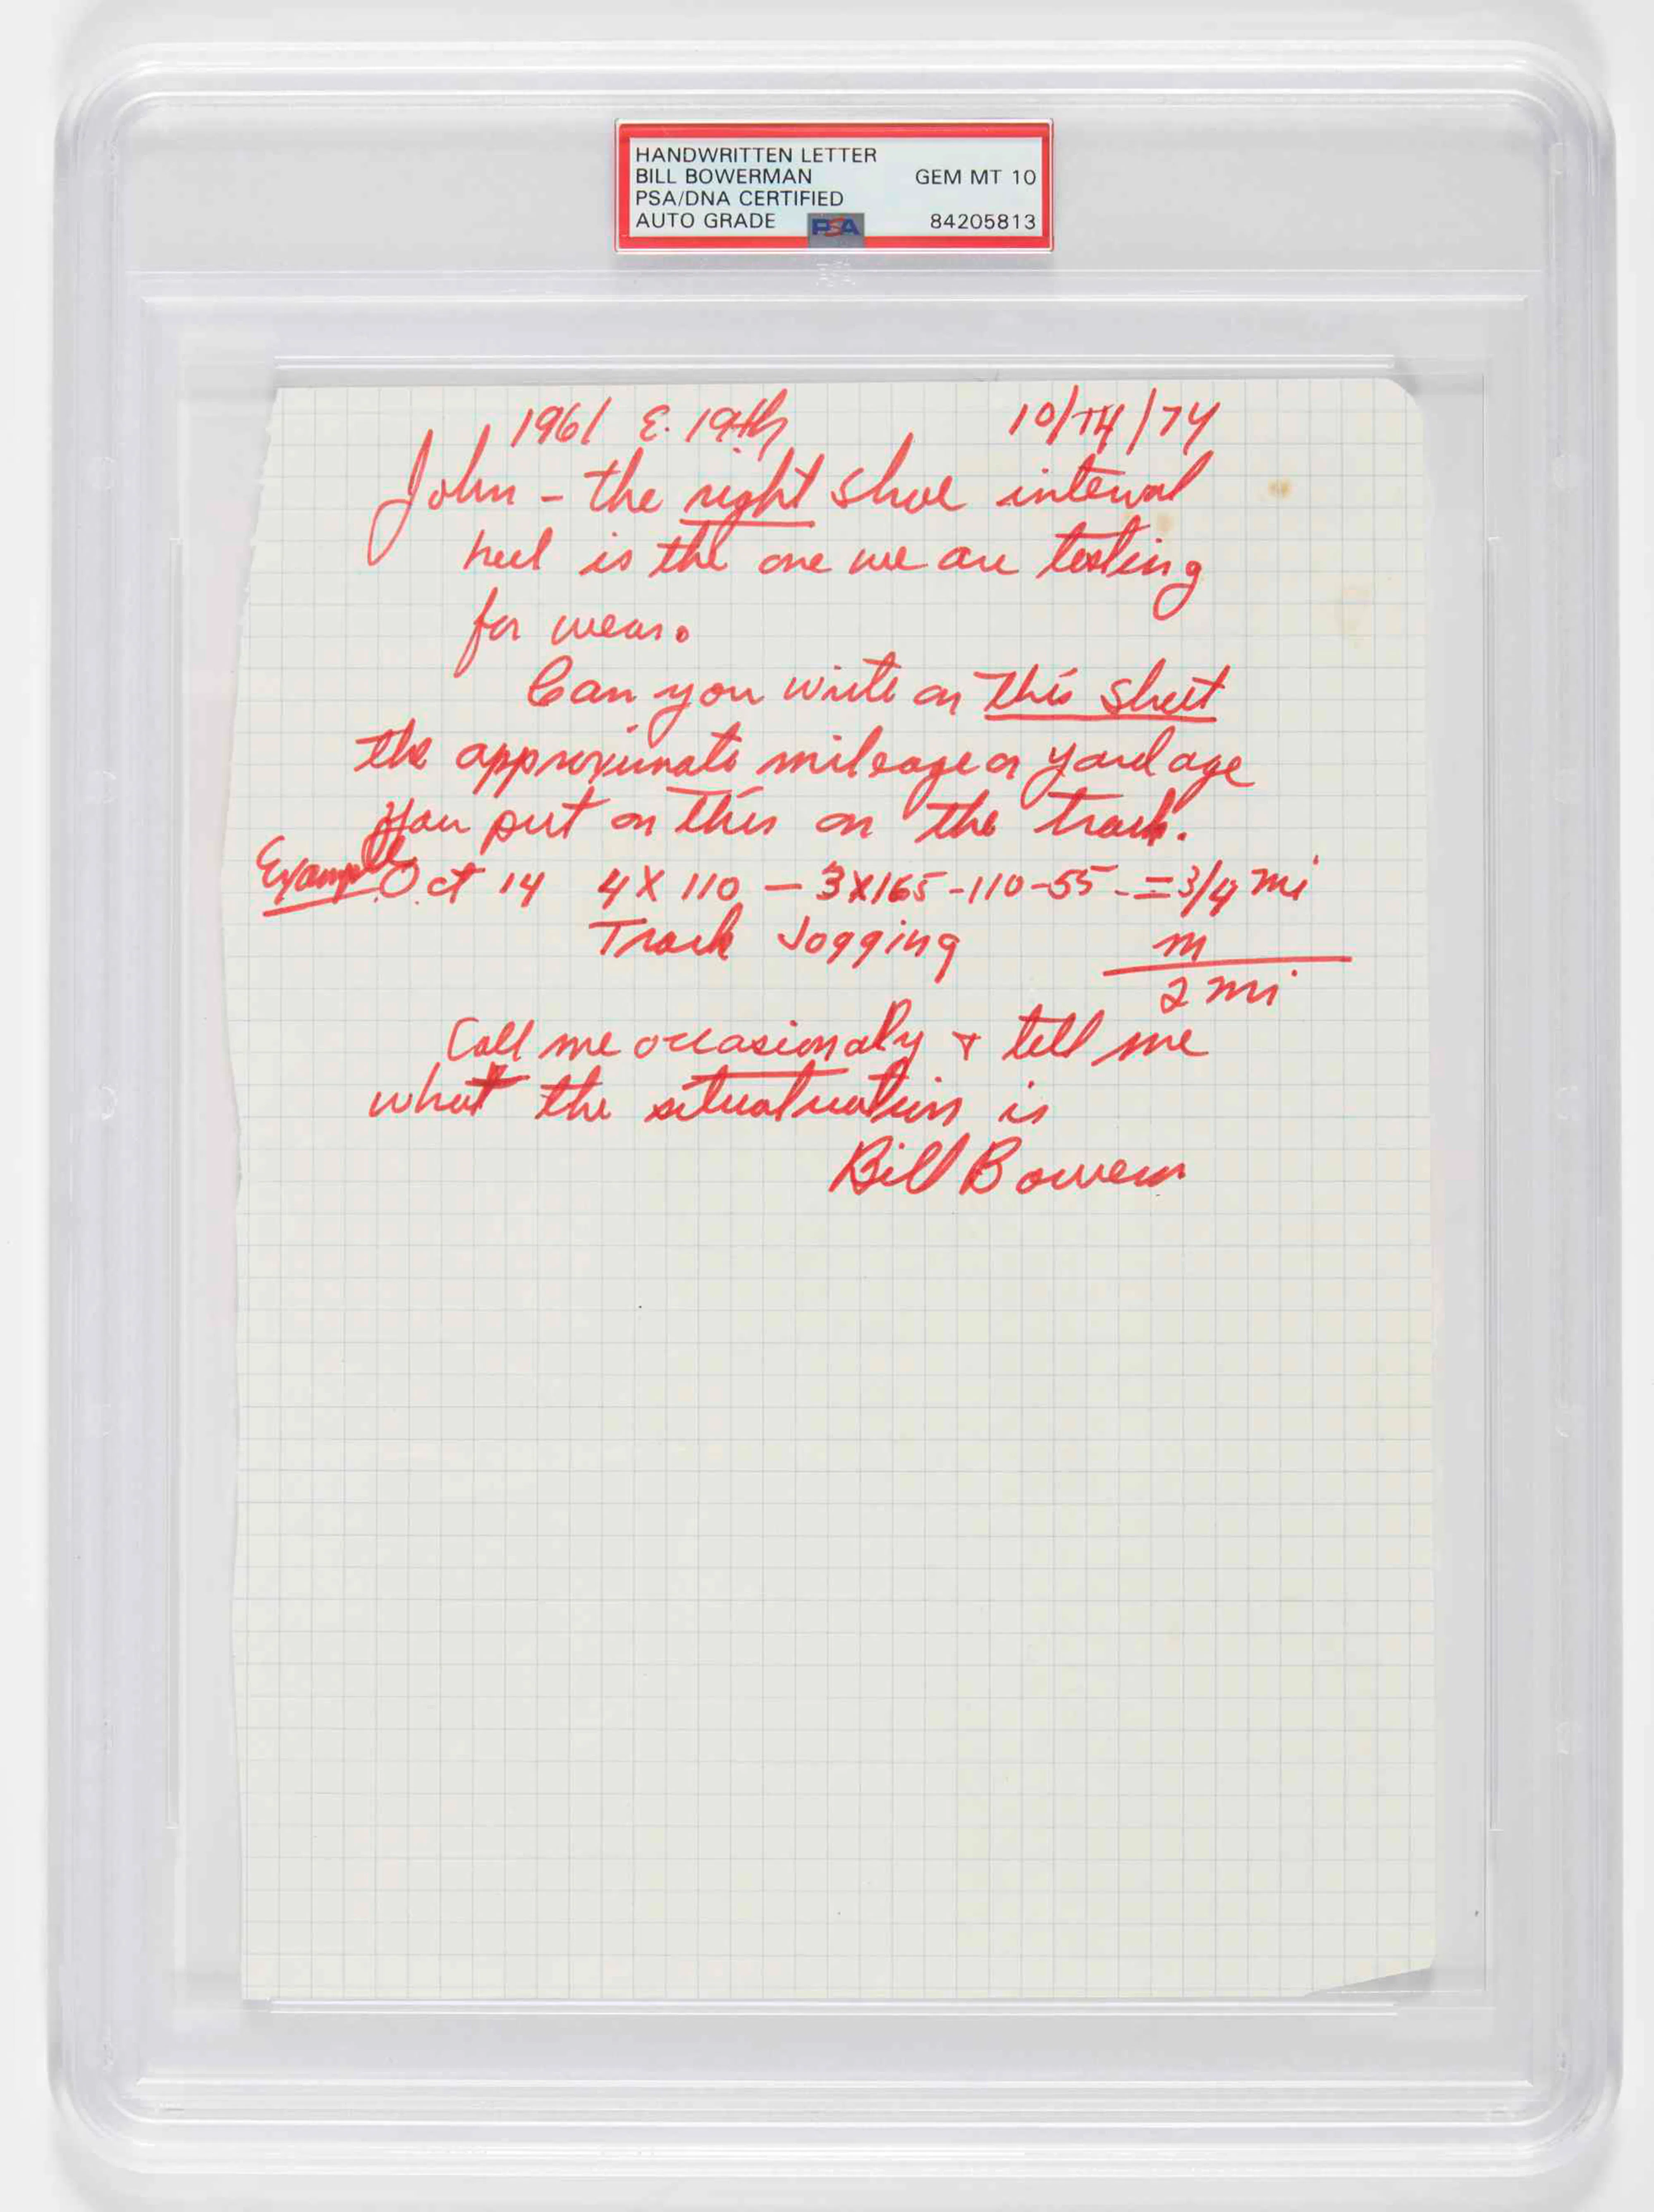 HANDWRITTEN LETTER
BILL BOWERMAN GEM MT 10
PSA/DNA CERTIFIED
AUTO GRADE PSA 84205813
1961 E. 19th 10/14/74
John - the right shoe interval
heel is the one we are testing
for wear.
Can you write on this sheet
the approximate mileage or yardage
you put on this on the track.
Example Oct 14 4X110 - 3X165-110-55 - = 3/4 mi
Track Jogging m
2 mi
Call me occasionaly & tell me
what the situatuation is
Bill Bowerm